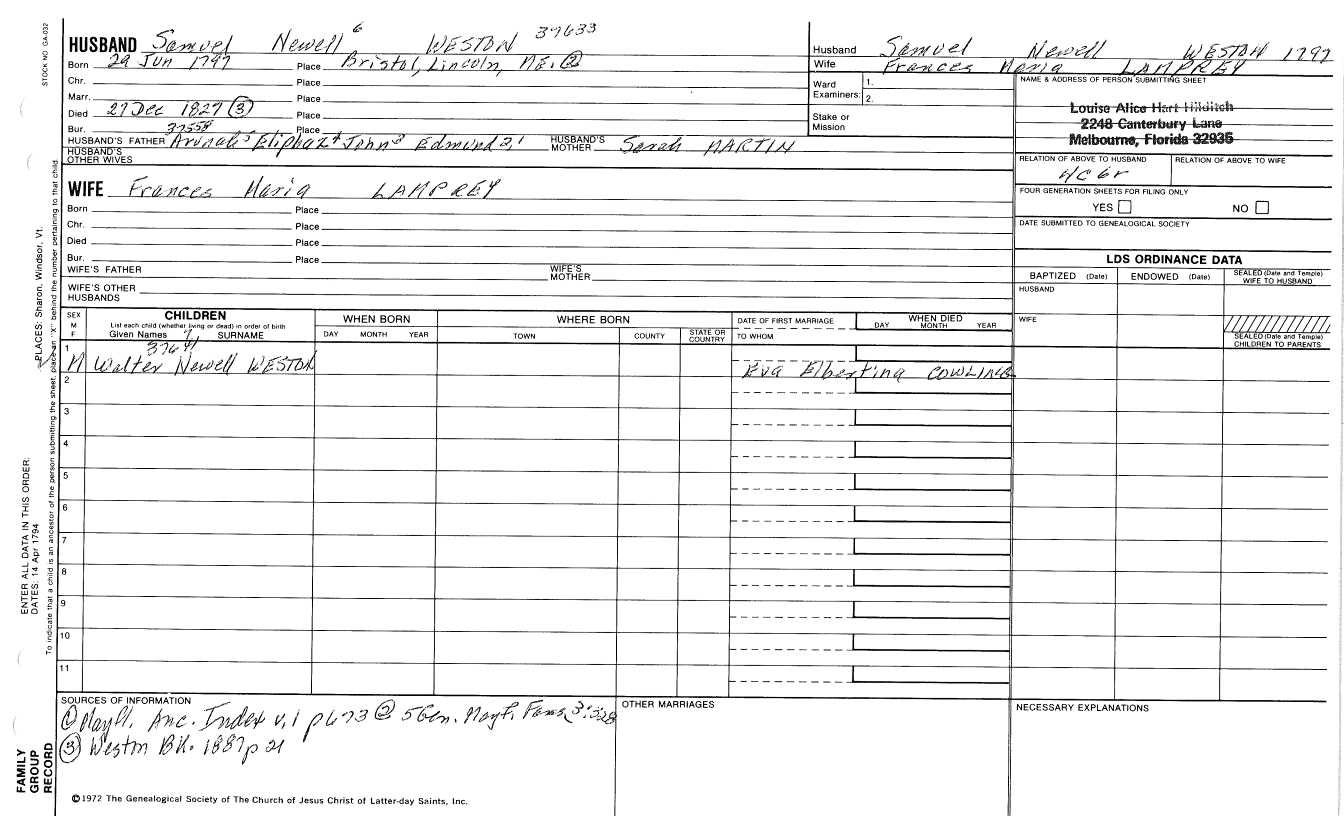 STOCK NO GA-032
HUSBAND Samuel Newell 6 WESTON 37633
Born 29 Jun 1797 Place Bristol, Lincoln, ME. ②
Chr. Place
Marr. Place
Died 27 Dec 1827 ③ Place
Bur. 37558 Place
HUSBAND'S FATHER Arunah 5 Eliphaz 4 John 3 Edmund 2,1 HUSBAND'S MOTHER Sarah MARTIN
HUSBAND'S OTHER WIVES
WIFE Frances Maria LAMPREY
Born Place
Chr. Place
Died Place
Bur. Place
WIFE'S FATHER WIFE'S MOTHER
WIFE'S OTHER HUSBANDS
Husband Samuel Newell WESTON 1797
Wife Frances Maria LAMPREY
Ward Examiners: 1. 2.
Stake or Mission
NAME & ADDRESS OF PERSON SUBMITTING SHEET
Louise Alice Hart Hilditch
2248 Canterbury Lane
Melbourne, Florida 32935
RELATION OF ABOVE TO HUSBAND RELATION OF ABOVE TO WIFE
4C6r
FOUR GENERATION SHEETS FOR FILING ONLY
YES NO
DATE SUBMITTED TO GENEALOGICAL SOCIETY
LDS ORDINANCE DATA
BAPTIZED (Date) ENDOWED (Date) SEALED (Date and Temple) WIFE TO HUSBAND
HUSBAND
WIFE
SEALED (Date and Temple) CHILDREN TO PARENTS
SEX M F
CHILDREN
List each child (whether living or dead) in order of birth
Given Names SURNAME
WHEN BORN
DAY MONTH YEAR
WHERE BORN
TOWN COUNTY STATE OR COUNTRY
DATE OF FIRST MARRIAGE
TO WHOM
WHEN DIED
DAY MONTH YEAR
1 37641 7
M Walter Newell WESTON Eva Elbertina COWLING
2
3
4
5
6
7
8
9
10
11
SOURCES OF INFORMATION
① Mayfl. Anc. Index v.1 p673 ② 5 Gen. Mayf. Fams 3:328
③ Westn Bk. 1887 p 21
OTHER MARRIAGES
NECESSARY EXPLANATIONS
©1972 The Genealogical Society of The Church of Jesus Christ of Latter-day Saints, Inc.
FAMILY
GROUP
RECORD
ENTER ALL DATA IN THIS ORDER:
DATES: 14 Apr 1794
PLACES: Sharon, Windsor, Vt.
To indicate that a child is an ancestor of the person submitting the sheet, place an "X" behind the number pertaining to that child.